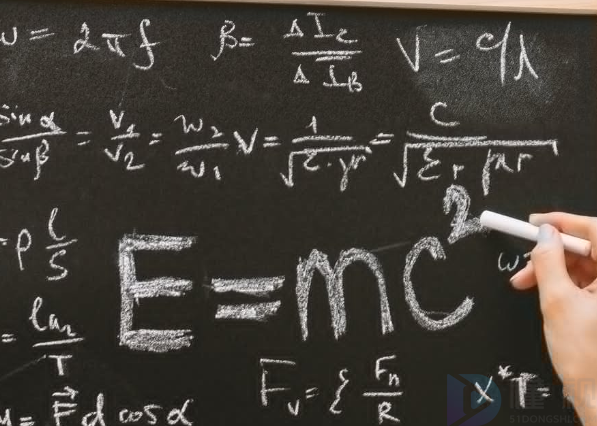 ω = 2πf β = ΔI_c / ΔI_β V = c/λ
sin α / sin β = V₁ / V₂ = n₂ / n₁ V = 1 / √(ε · μ) = c / √(εr μr)
= ρ l/S
E = mc²
= ln₂ / T
F_v = { F_n / R x*T =
= F⃗ d cos α